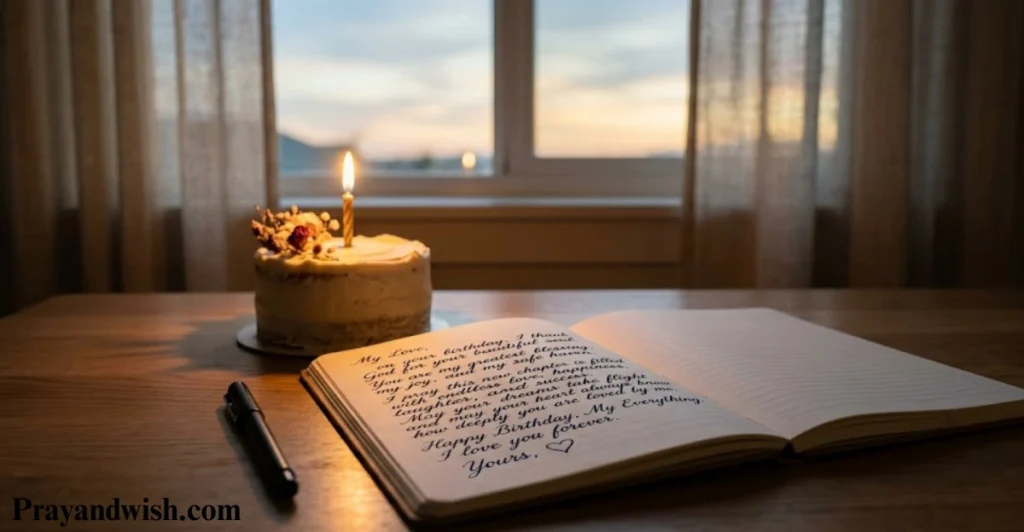 My Love,
on your birthday, I thank
God for your beautiful soul.
You are my greatest blessing,
my joy, and my safe haven.
I pray this new chapter is filled
with endless love, happiness,
laughter, and success.
May your dreams take flight,
and may your heart always know
how deeply you are loved by me.
Happy Birthday, My Everything.
I love you forever.
Yours,
Prayandwish.com